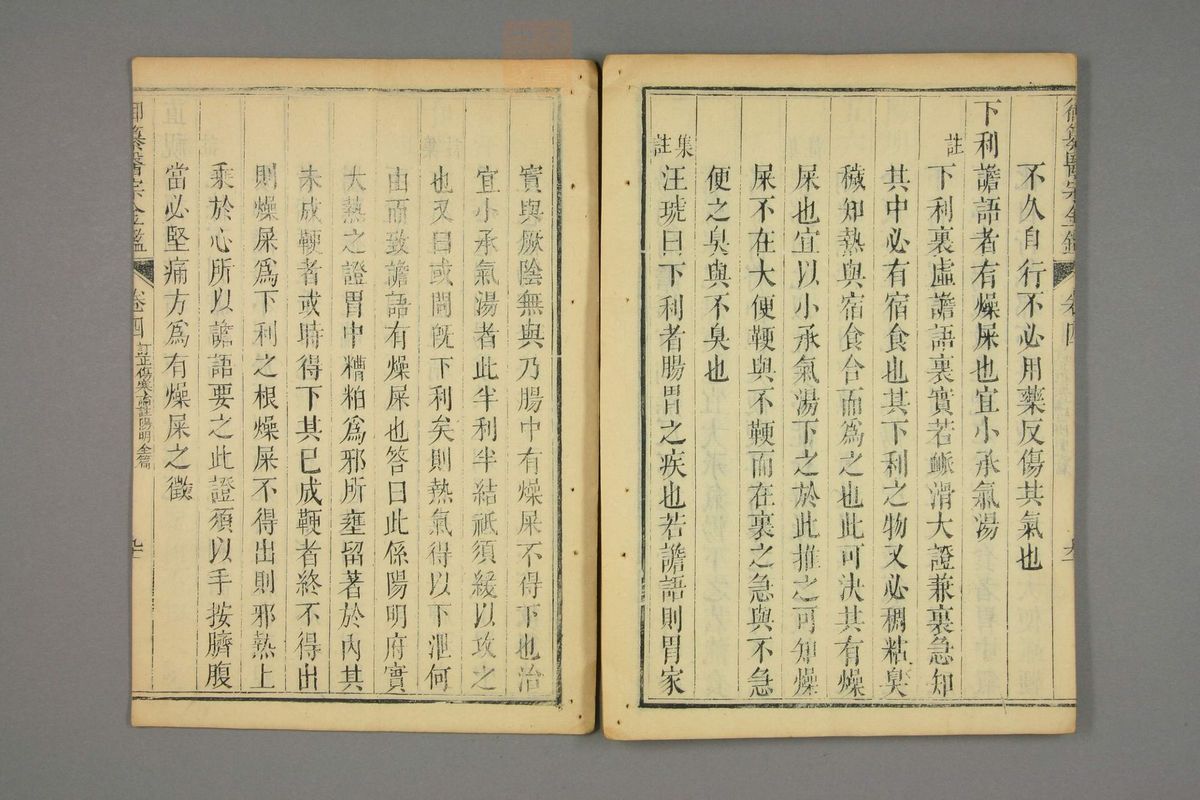 御纂醫宗金鑑 卷四
不久自行不必用藥反傷其氣也
下利譫語者有燥屎也宜小承氣湯
註
下利裏虛譫語裏實若脈滑大證兼裏急知
其中必有宿食也其下利之物又必稠粘臭
穢知熱與宿食合而為之也此可決其有燥
屎也宜以小承氣湯下之於此推之可知燥
屎不在大便鞕與不鞕而在裏之急與不急
便之臭與不臭也
集註
汪琥曰下利者腸胃之疾也若譫語則胃家
實與厥陰無與乃腸中有燥屎不得下也治
宜小承氣湯者此半利半結祇須緩以攻之
也又曰或問既下利矣則熱氣得以下泄何
由而致譫語有燥屎也答曰此係陽明府實
大熱之證胃中糟粕為邪所壅留著於內其
未成鞕者或時得下其已成鞕者終不得出
則燥屎為下利之根燥屎不得出則邪熱上
乘於心所以譫語要之此證須以手按臍腹
當必堅痛方為有燥屎之徵
御纂醫宗金鑑 卷四 訂正傷寒論註陽明全篇